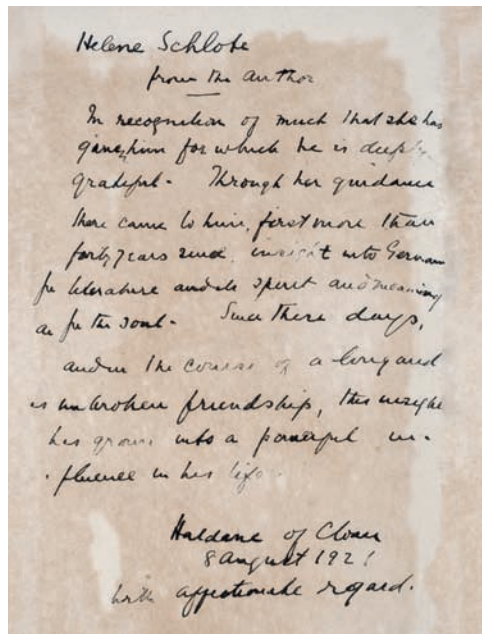 Helene Schlote
from the author
In recognition of much that she has
given him for which he is deeply
grateful. Through her guidance
there came to him, first more than
forty years since, insight into German
literature and its spirit and meaning
for the soul. Since these days,
and in the course of a long and
unbroken friendship, this insight
has grown into a powerful in-
fluence in his life.
Haldane of Cloan
8 August 1921
with affectionate regard.